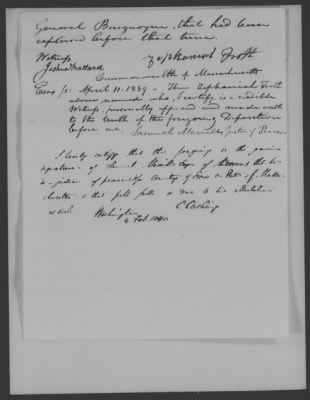 General Burgoyne, that had been
captured before that time.
Witness
Joshua Ballard
Zephaniah Frost
Commonwealth of Massachusetts
Essex ss. April 11. 1839 - Then Zephaniah Frost
above named, who I certify is a credible
Witness, personally appeared and made oath
to the truth of the foregoing Deposition
before me, Samuel Merrill Justice of Peace
I hereby certify that the foregoing is the genuine
signature of Samuel Merrill Esqr of the
a justice of peace of County of Essex State of Mass
& that full faith is due to his attestation
as such.
Washington
C Cushing
Feb. 1840